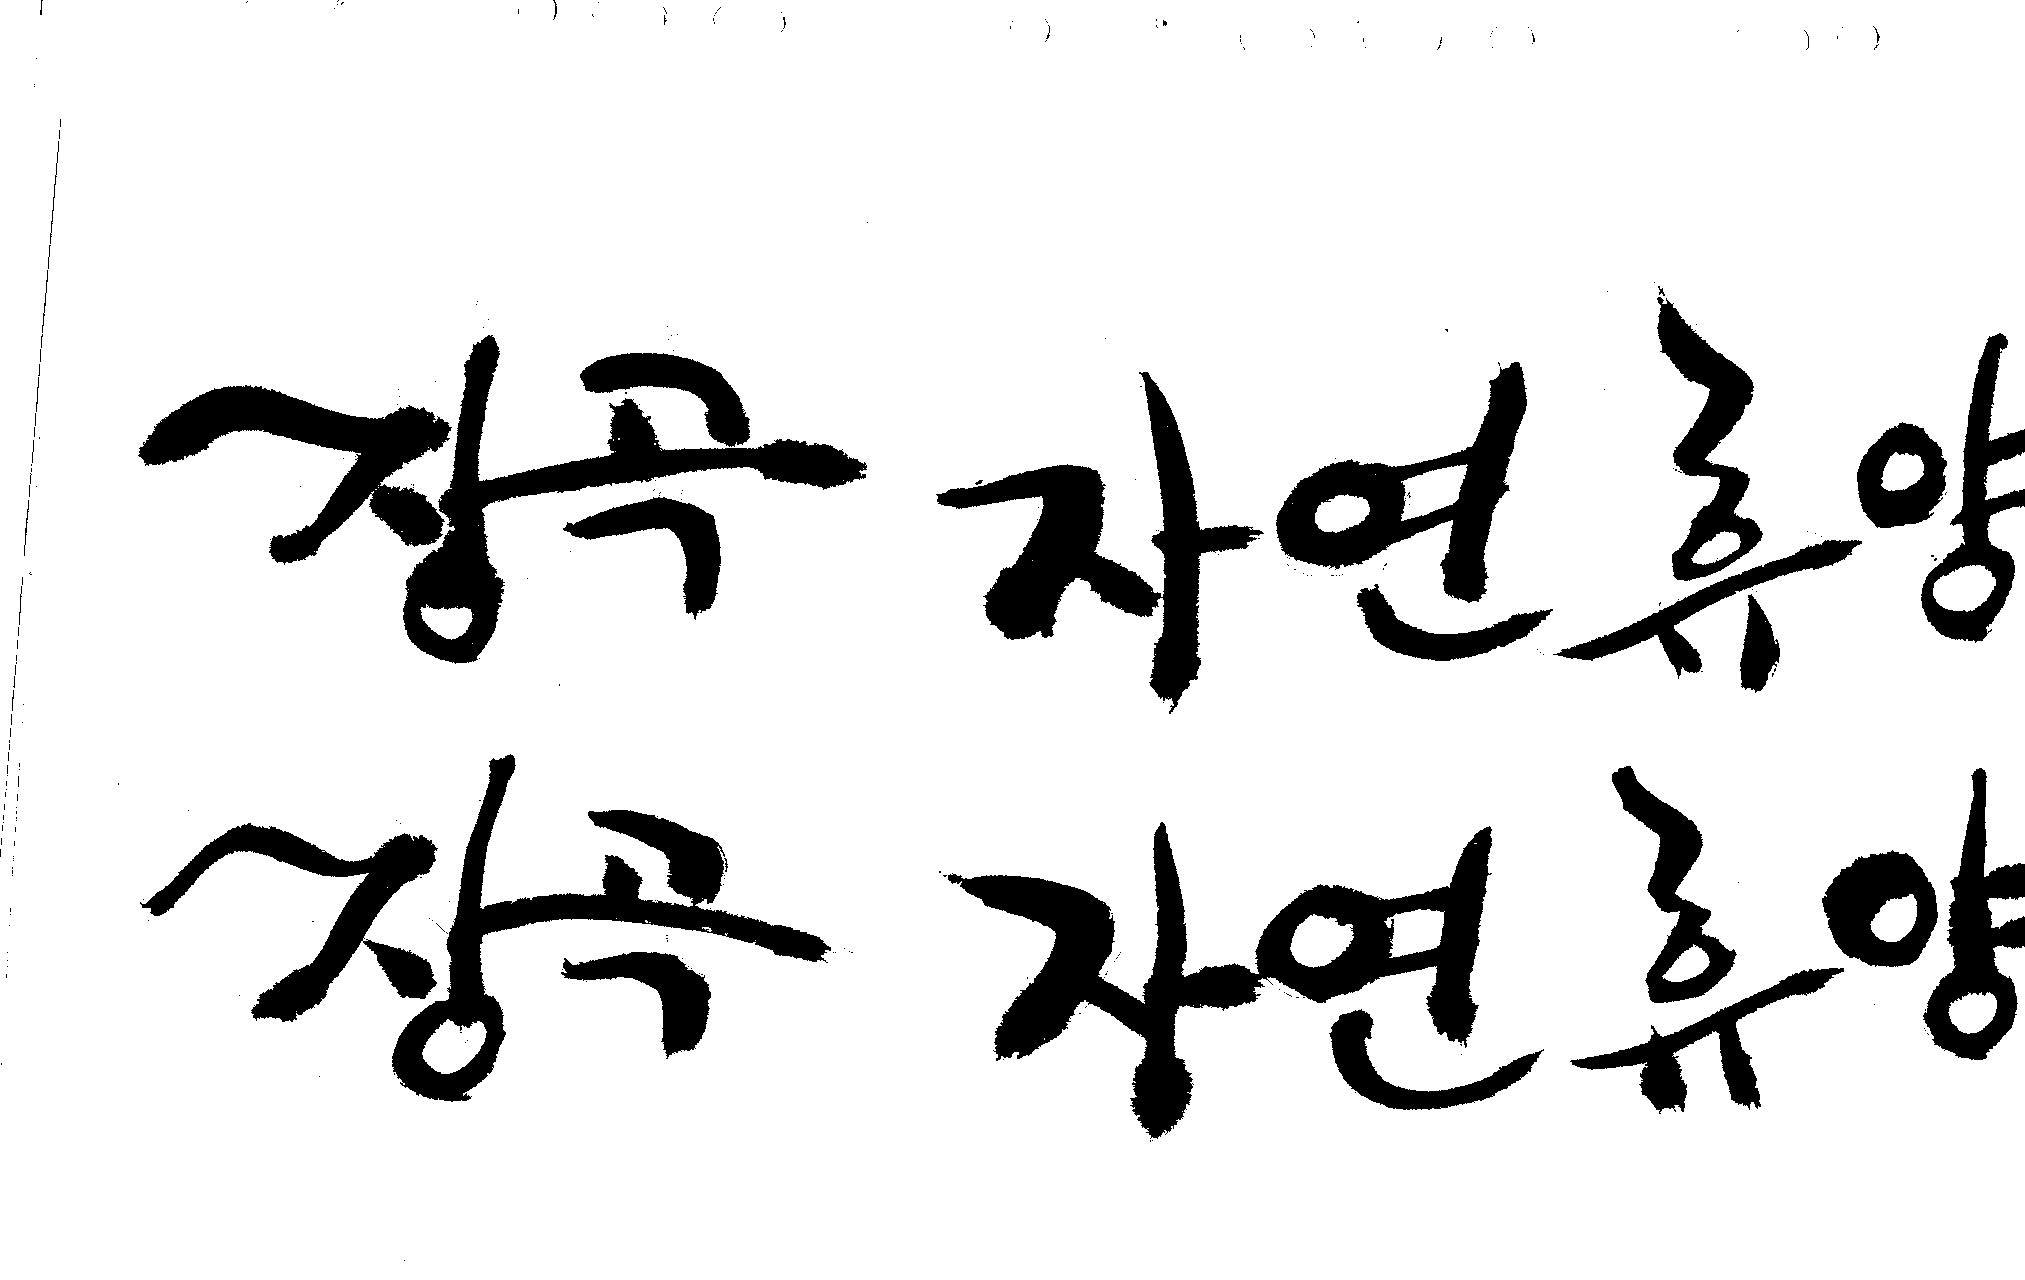 장곡 자연휴양
장곡 자연휴양